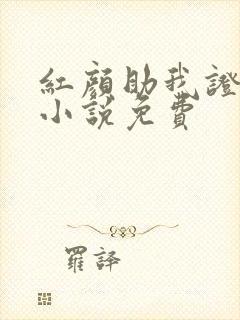 紅顏助我證
小說免費
羅譯